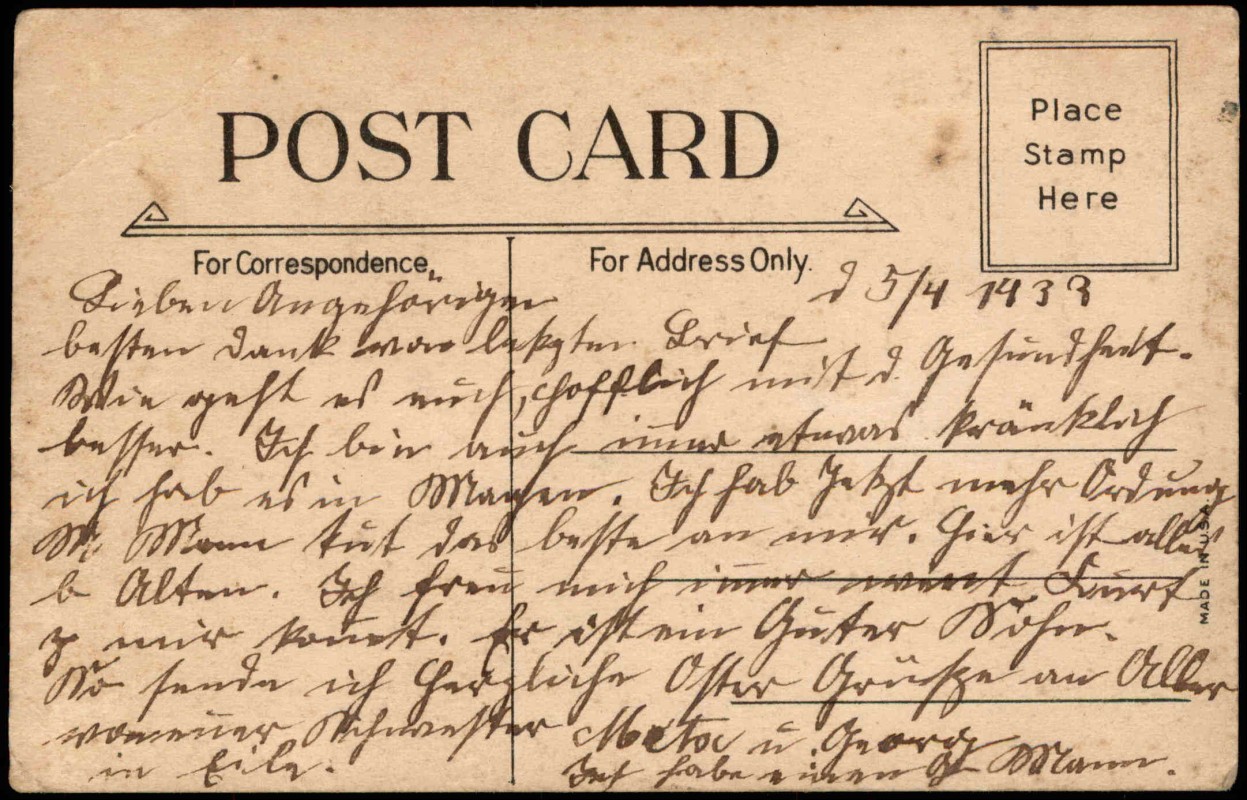 POST CARD
Place
Stamp
Here
For Correspondence
For Address Only.
d 5/4 1933
Lieben Angehörigen
besten Dank vor letzten Brief
Wie geht es euch, hoffllich mit d. Gesundheit
besser. Ich bin auch immer etwas kränklich
ich hab es in Magen. Ich hab Jetzt mehr Ordung
M. Mann tut das beste an mir. Hier ist alles
b Alten. Ich freu mich immer wenn Kurt
z mir kommt. Er ist ein Guter Sohn.
So sende ich Herzliche Oster Grüße an Aller
von eurer Schwester Meta u. Georg
in Eile. Ich habe einen Mann.
MADE IN U.S.A.